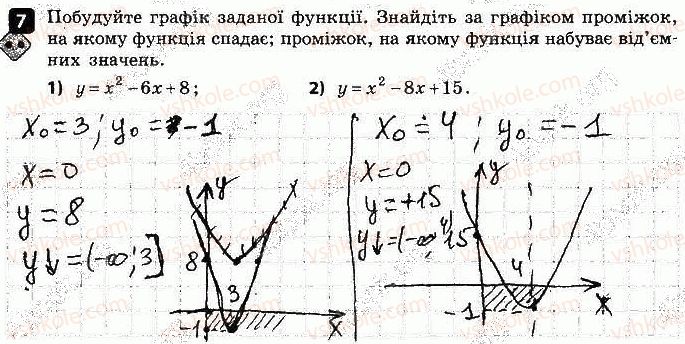 7 Побудуйте графік заданої функції. Знайдіть за графіком проміжок,
на якому функція спадає; проміжок, на якому функція набуває від'єм-
них значень.
1) y = x² − 6x + 8;
2) y = x² − 8x + 15.
x₀ = 3; y₀ = −1
x = 0
y = 8
y↓ = (−∞; 3]
y
8
3
−1
x
x₀ = 4; y₀ = −1
x = 0
y = +15
y↓ = (−∞; 4)
y
15
4
−1
x
vshkole.com